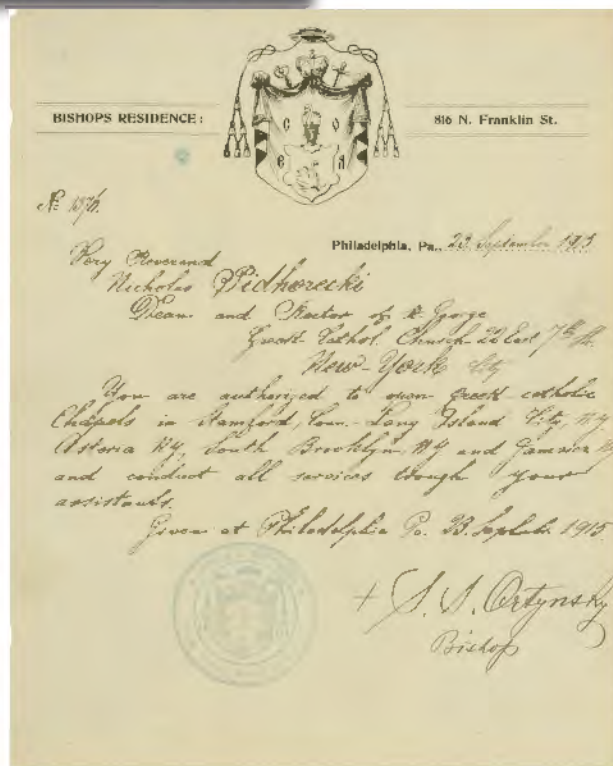 BISHOPS RESIDENCE:
816 N. Franklin St.
№ 1376.
Philadelphia, Pa., 23 September 1915
Very Reverand
Nicholas Pidhorecki
Dean and Rector of St. George
Greek Cathol. Church 22 East 7th St.
New-York City
You are authorized to open greek catholic
Chapels in Stamford, Conn. Long Island City, N.Y.
Astoria N.Y, South Brooklyn, N.Y and Jamaica N.Y
and conduct all services trough your
assistants.
Given at Philadelphia Pa. 23. Septemb. 1915
+ S. S. Ortynsky
Bishop